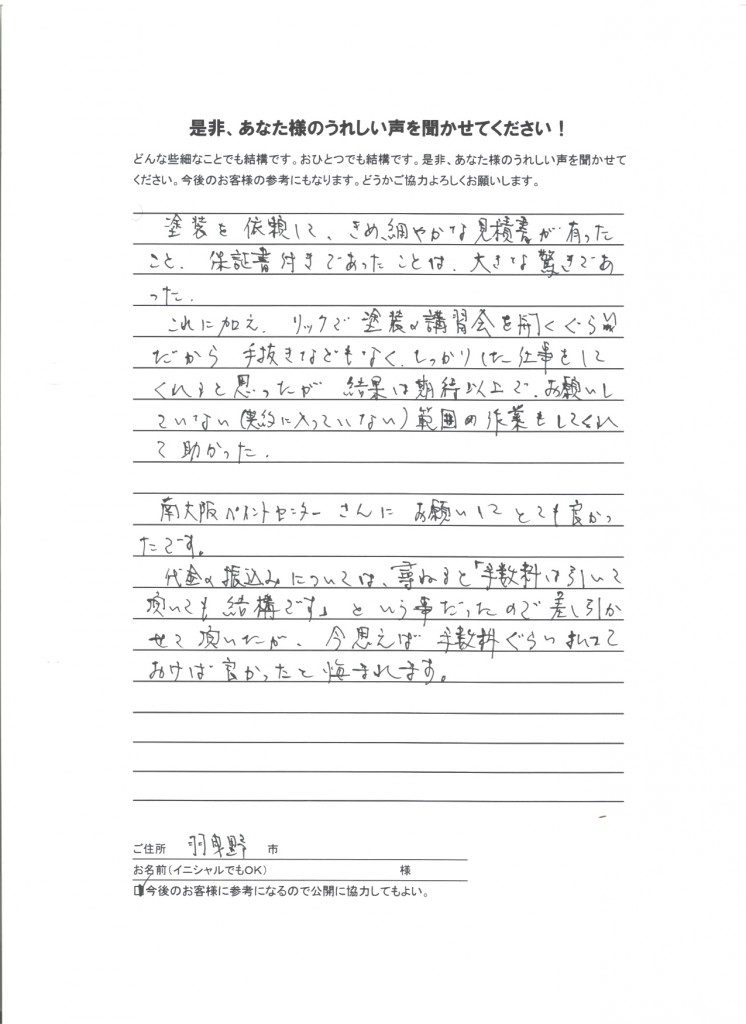 是非、あなた様のうれしい声を聞かせてください！
どんな些細なことでも結構です。おひとつでも結構です。是非、あなた様のうれしい声を聞かせて
ください。今後のお客様の参考にもなります。どうかご協力よろしくお願いします。
塗装を依頼して、きめ細やかな見積書が有った
こと、保証書付きであったことは、大きな驚きであ
った。
これに加え、リックで塗装の講習会を開くぐらい
だから手抜きなどもなく、しっかりした仕事をして
くれると思ったが結果は期待以上で、お願いし
ていない(契約に入っていない)範囲の作業もしてくれ
て助かった。
南大阪ペイントセンターさんにお願いしてとても良かっ
たです。
代金の振込みについては、尋ねると「手数料は引いて
頂いても結構です」という事だったので差し引か
せて頂いたが、今思えば手数料ぐらい
おけば良かったと悔まれます。
ご住所 羽曳野 市
お名前(イニシャルでもOK) 様
今後のお客様に参考になるので公開に協力してもよい。